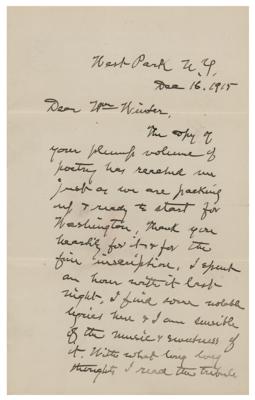 West Park N.Y.
Dec 16. 1915
Dear Wm Winter,
The copy of
your plump volume of
poetry has reached me
just as we are packing
up & ready to start for
Washington, thank you
heartily for it & for the
fine inscription. I spent
an hour with it last
night. I find some notable
lyrics here & I am sensible
of the music & sweetness of
it. With what long long
thoughts I read the tribute